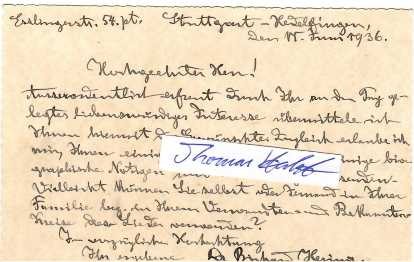 Esslingerstr. 54. pt. Stuttgart-Hedelfingen,
den 15. Juni 1936.
Hochgeehrter Herr!
Ausserordentlich erfreut durch Ihr an den Tag ge-
legtes liebenswürdiges Interesse übermittele ich
Ihnen hiermit das Gewünschte. Zugleich erlaube ich
mir, Ihnen einige bio-
graphische Notizen senden.
Vielleicht können Sie selbst oder Jemand in Ihrer
Familie bez. in Ihrem Verwandten und Bekannten-
Kreise das Lieder verwenden?
In vorzüglicher Hochachtung
Ihr ergebener Dr. Richard Hering
Thomas